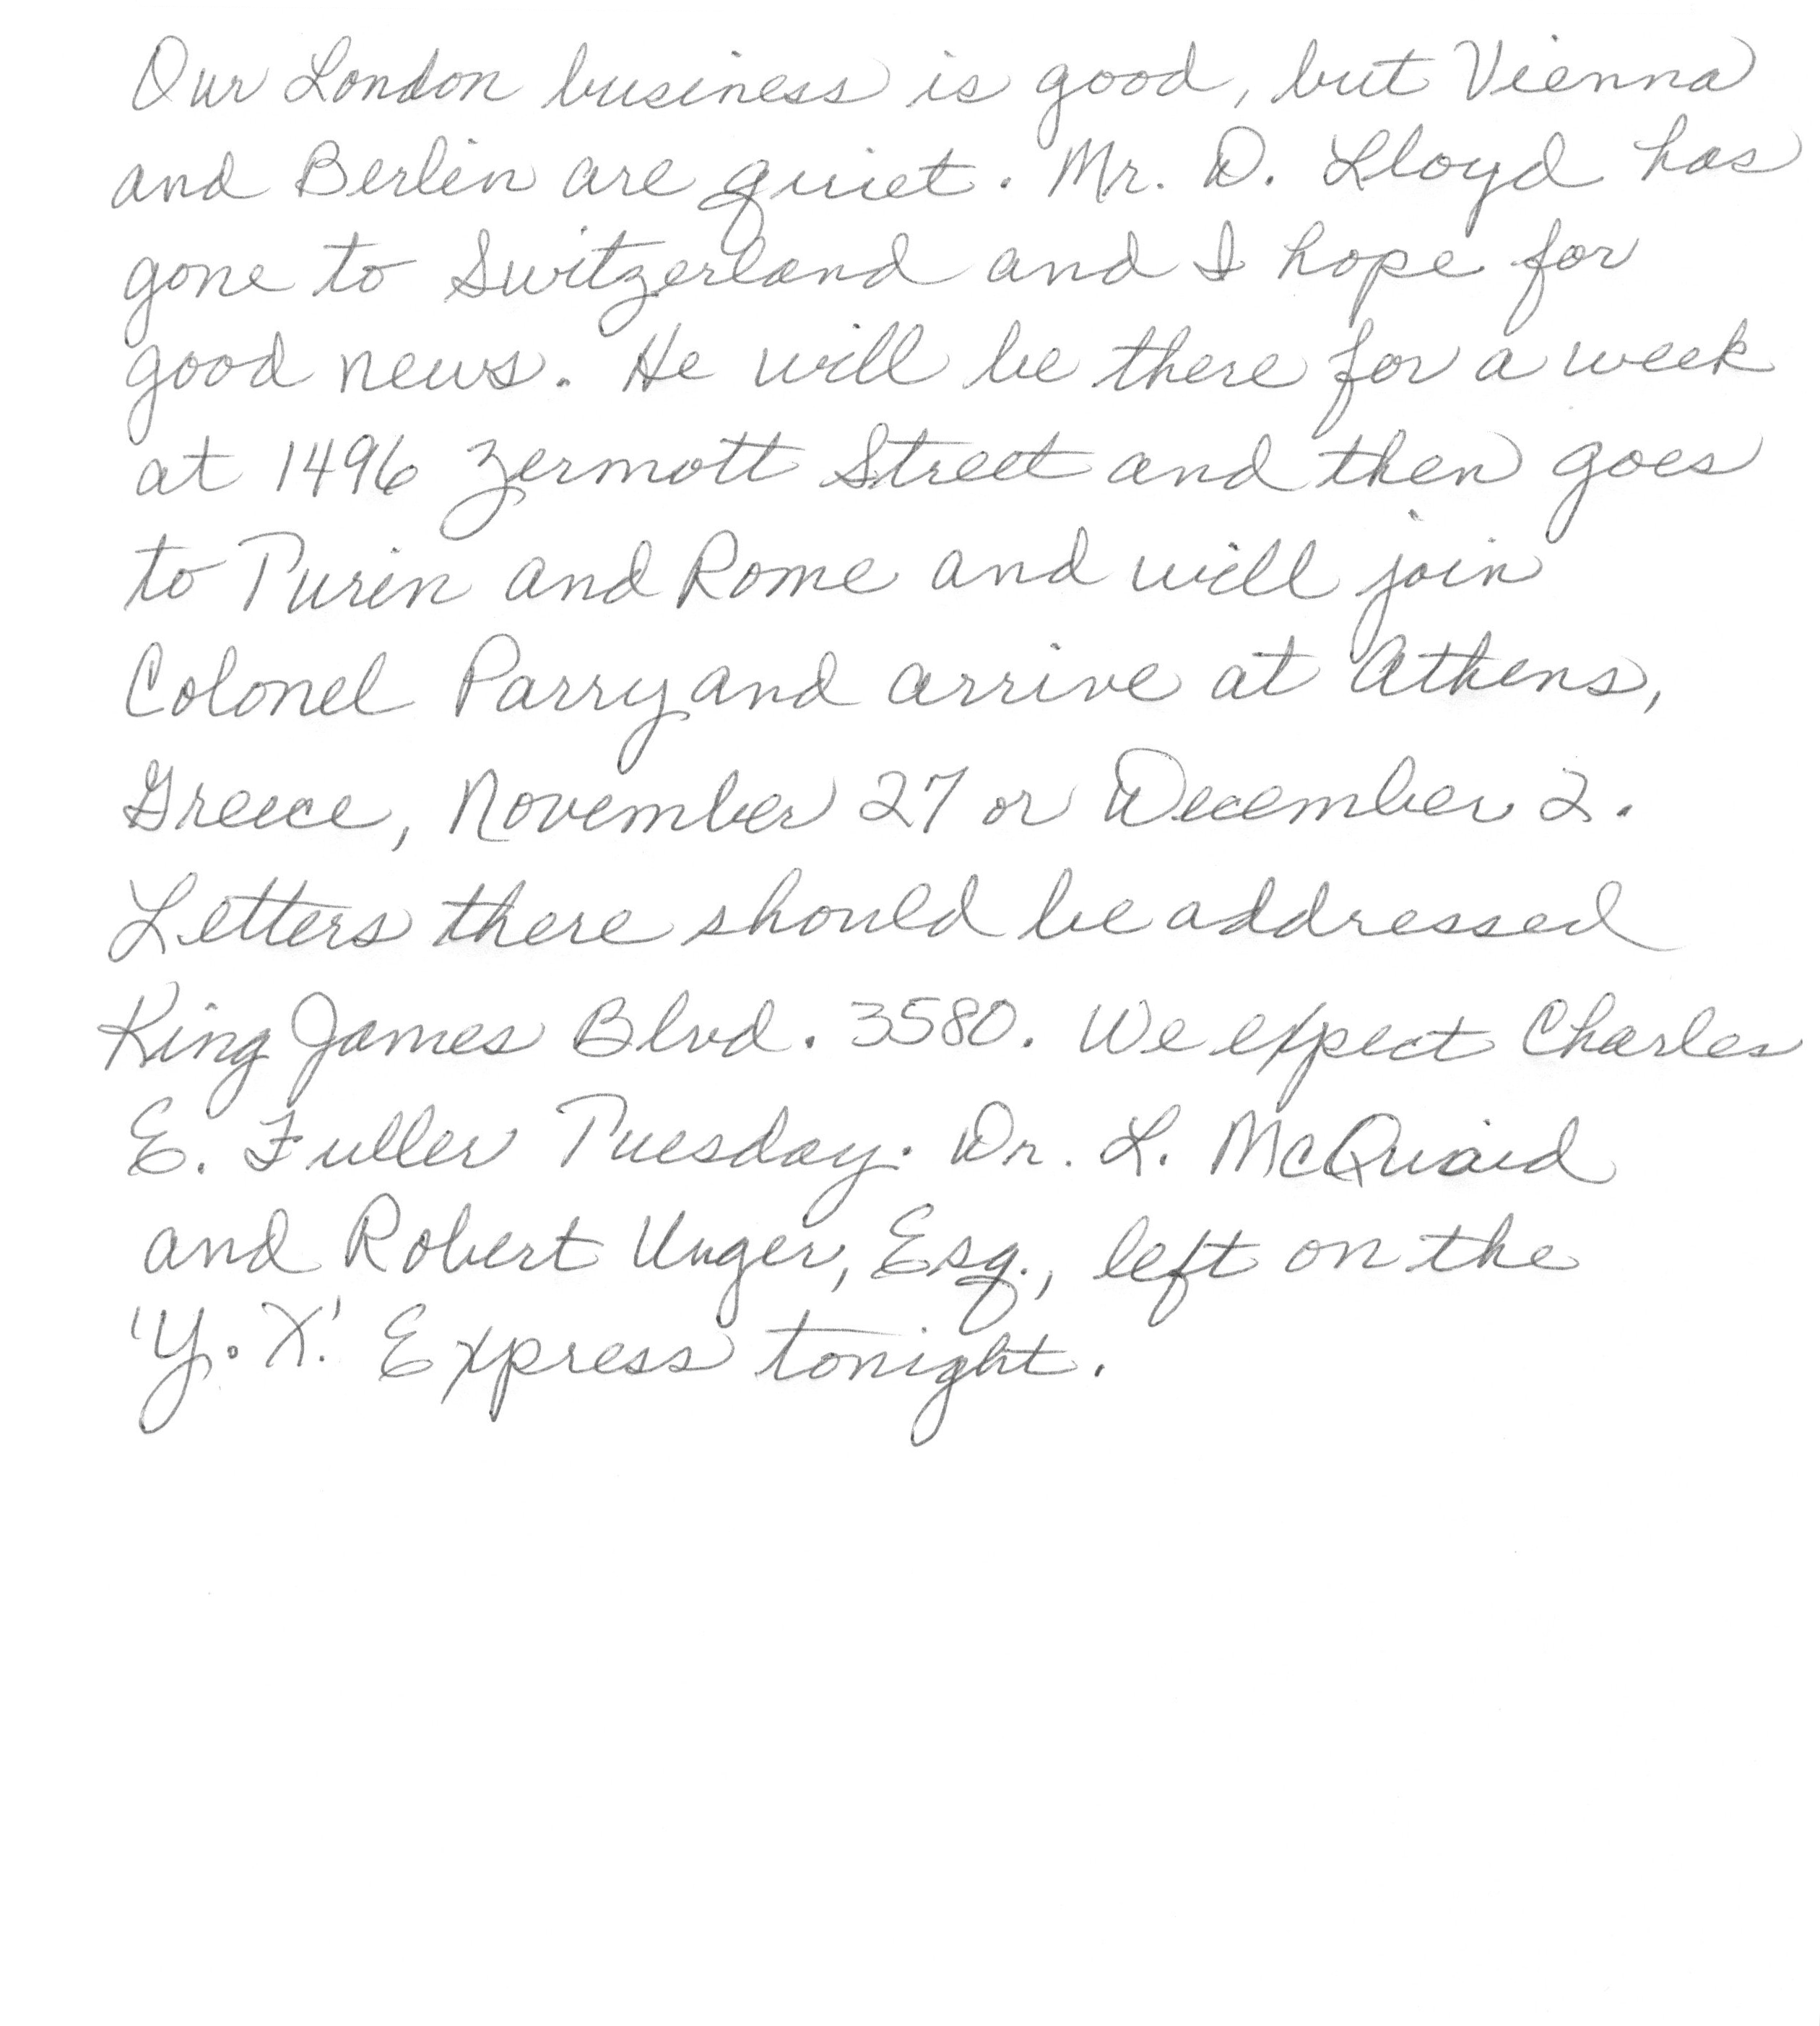 Our London business is good, but Vienna
and Berlin are quiet. Mr. D. Lloyd has
gone to Switzerland and I hope for
good news. He will be there for a week
at 1496 Zermott Street and then goes
to Turin and Rome and will join
Colonel Parry and arrive at Athens,
Greece, November 27 or December 2.
Letters there should be addressed
King James Blvd. 3580. We expect Charles
E. Fuller Tuesday. Dr. L. McQuaid
and Robert Unger, Esq., left on the
'Y. X.' Express tonight.